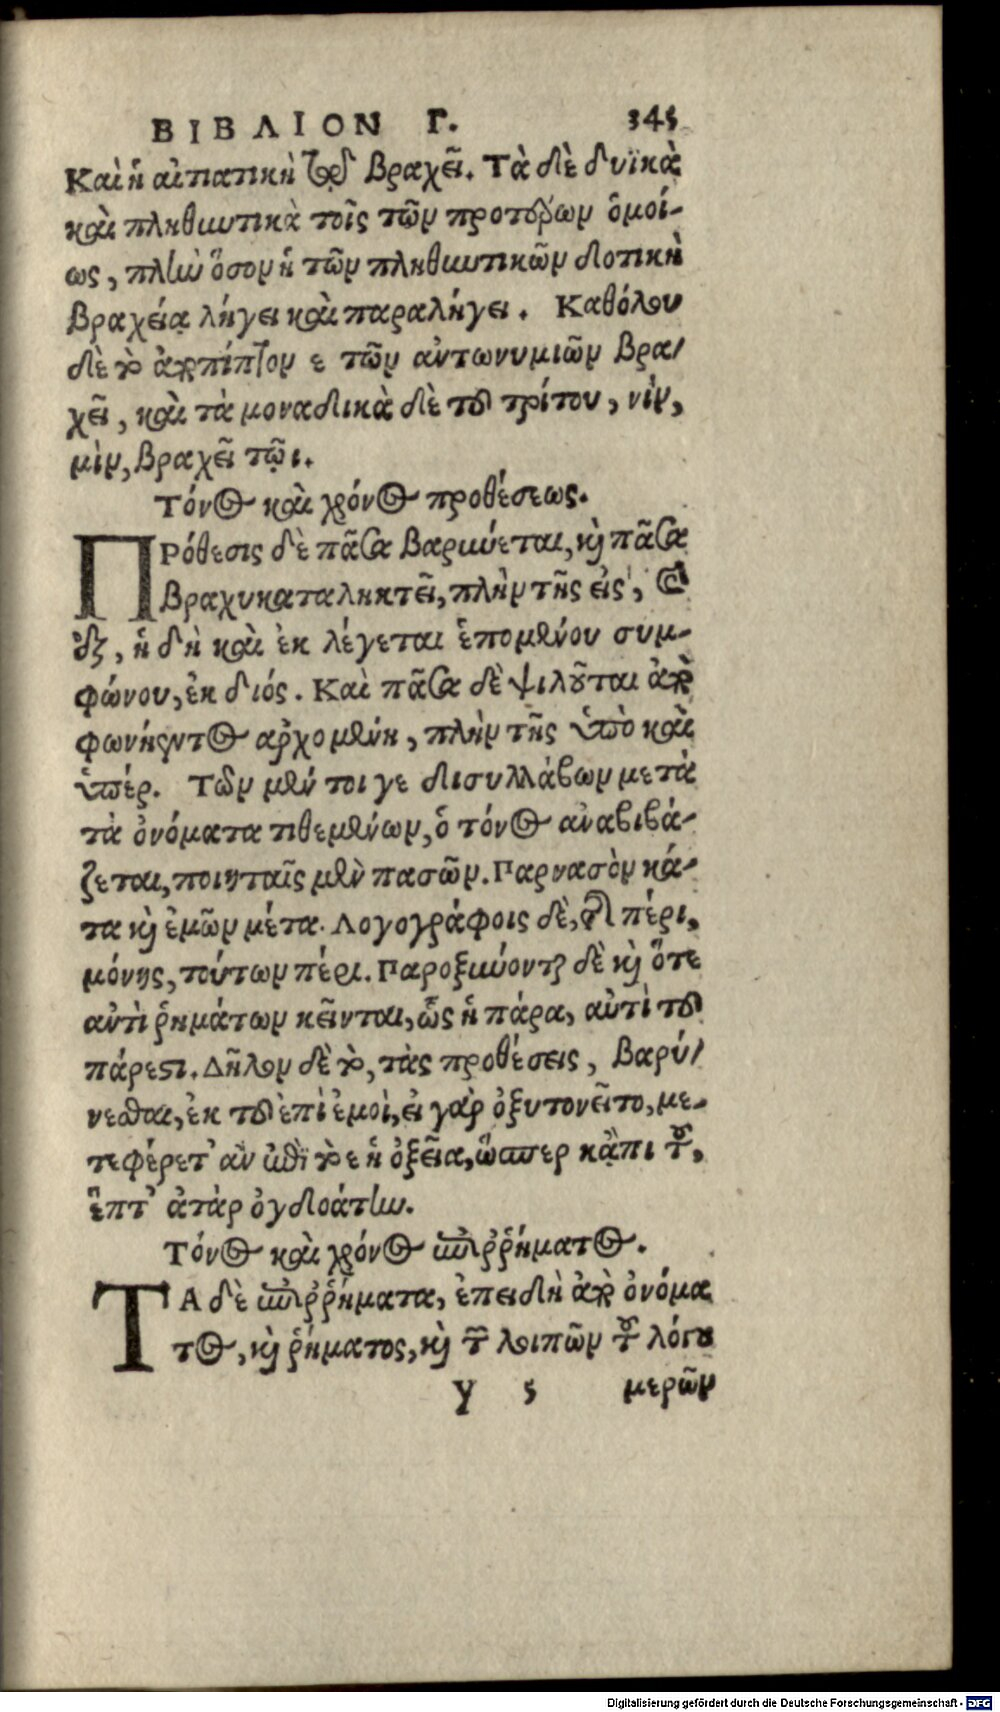 ΒΙΒΛΙΟΝ Γ. 345
Καὶ ἡ αἰτιατικὴ βραχεῖ. Τὰ δὲ δυϊκὰ
καὶ πληθωτικὰ τοῖς τῶν προτέρων ὁμοί-
ως, πλὴν ὅσον ἡ τῶν πληθωτικῶν δοτικὴ
βραχείᾳ λήγει καὶ παραλήγει. Καθόλου
δὲ τὸ παραπίπτον ε τῶν ἀντωνυμιῶν βρα/
χεῖ, καὶ τὰ μοναδικὰ δὲ τοῦ τρίτου, νὶν,
μὶν, βραχεῖ τῷ ι.
Τόνος καὶ χρόνος προθέσεως.
ΠΡόθεσις δὲ πᾶσα βαρύνεται, καὶ πᾶσα
βραχυκαταληκτεῖ, πλὴν τῆς εἰς, καὶ
ἐξ, ἡ δὴ καὶ ἐκ λέγεται ἑπομένου συμ-
φώνου, ἐκ διός. Καὶ πᾶσα δὲ ψιλοῦται παρὰ
φωνήεντος ἀρχομένη, πλὴν τῆς ὑπὸ καὶ
ὑπέρ. Τῶν μέν τοι γε δισυλλάβων μετὰ
τὰ ὀνόματα τιθεμένων, ὁ τόνος ἀναβιβά-
ζεται, ποιηταῖς μὲν πασῶν. Παρνασὸν κά-
τα καὶ ἐμῶν μέτα. Λογογράφοις δὲ, περὶ πέρι,
μόνης, τούτων πέρι. Παροξύνονται δὲ καὶ ὅτε
αὐτὶ ῥημάτων κεῖνται, ὡς ἡ πάρα, αὐτὶ τοῦ
πάρεστι. Δῆλον δὲ τὸ, τὰς προθέσεις, βαρύ/
νεσθαι, ἐκ τοῦ ἐπὶ ἐμοὶ, εἰ γὰρ ὀξυτονεῖτο, με-
τεφέρετ' ἂν ἐπὶ τὸ ε ἡ ὀξεῖα, ὥσπερ κἄπι τοῦ,
ἕπτ' ἀτὰρ ὀγδοάτην.
Τόνος καὶ χρόνος ἐπιῤῥήματος.
ΤΑ δὲ ἐπιῤῥήματα, ἐπειδὴ παρὰ ὀνόμα
τος, καὶ ῥήματος, καὶ τῶν λοιπῶν τοῦ λόγου
y 5 μερῶν
Digitalisierung gefördert durch die Deutsche Forschungsgemeinschaft - DFG